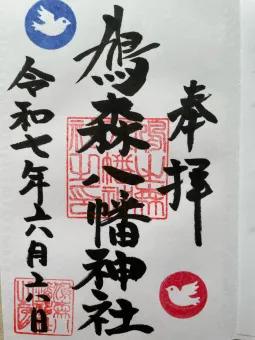 奉拝
鳩森八幡神社
令和七年六月六日